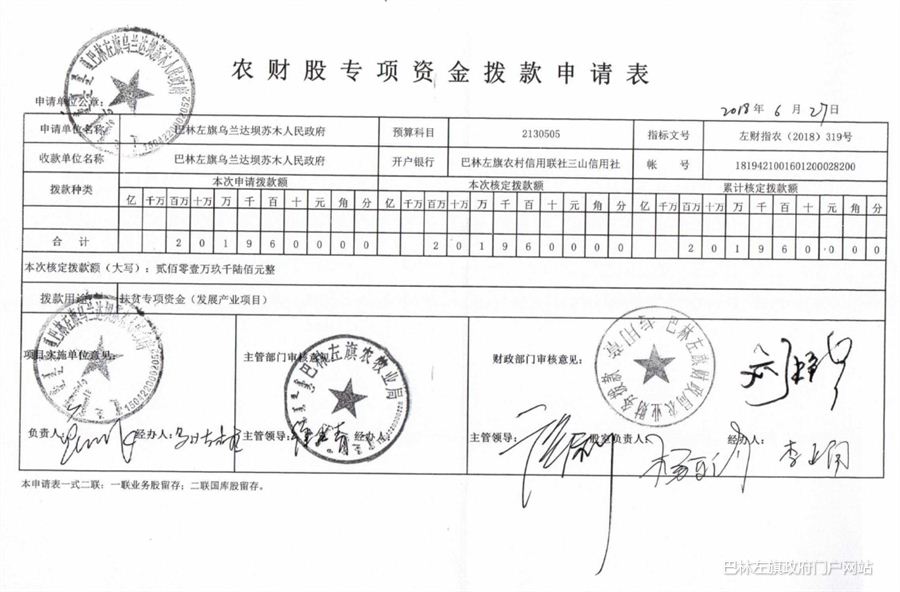 农财股专项资金拨款申请表
申请单位公章:
2018年6月27日
申请单位名称 巴林左旗乌兰达坝苏木人民政府 预算科目 2130505 指标文号 左财指农(2018)319号
收款单位名称 巴林左旗乌兰达坝苏木人民政府 开户银行 巴林左旗农村信用联社三山信用社 帐号 1819421001601200028200
拨款种类 本次申请拨款额 本次核定拨款额 累计核定拨款额
亿 千万 百万 十万 万 千 百 十 元 角 分 亿 千万 百万 十万 万 千 百 十 元 角 分 亿 千万 百万 十万 万 千 百 十 元 角 分
合计 2 0 1 9 6 0 0 0 0 2 0 1 9 6 0 0 0 0 2 0 1 9 6 0 0 0 0
本次核定拨款额(大写):贰佰零壹万玖千陆佰元整
拨款用途 扶贫专项资金(发展产业项目)
项目实施单位意见: 主管部门审核意见: 财政部门审核意见:
负责人: 经办人: 主管领导: 经办人: 主管领导: 股室负责人: 经办人:
本申请表一式二联:一联业务股留存;二联国库股留存。
巴林左旗乌兰达坝苏木人民政府
1504220002052
巴林左旗乌兰达坝苏木人民政府
巴林左旗农牧业局
巴林左旗财政局农业财务拨款
专用章
巴林左旗政府门户网站